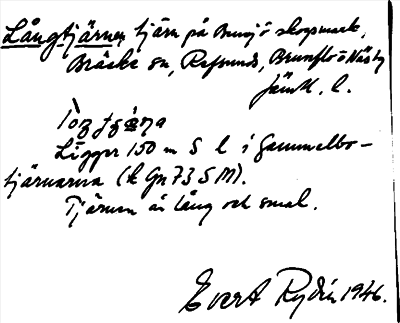 Långtjärnen tjärn på Bensjö skogsmark,
Bräcke sn, Refsunds, Brunflo o Näsby
Jämtl. l.
Ligger 150 m S l i Gammelbo-
tjärnarna (k Gn 73 S M).
Tjärnen är lång och smal.
Evert Rydin 1946.